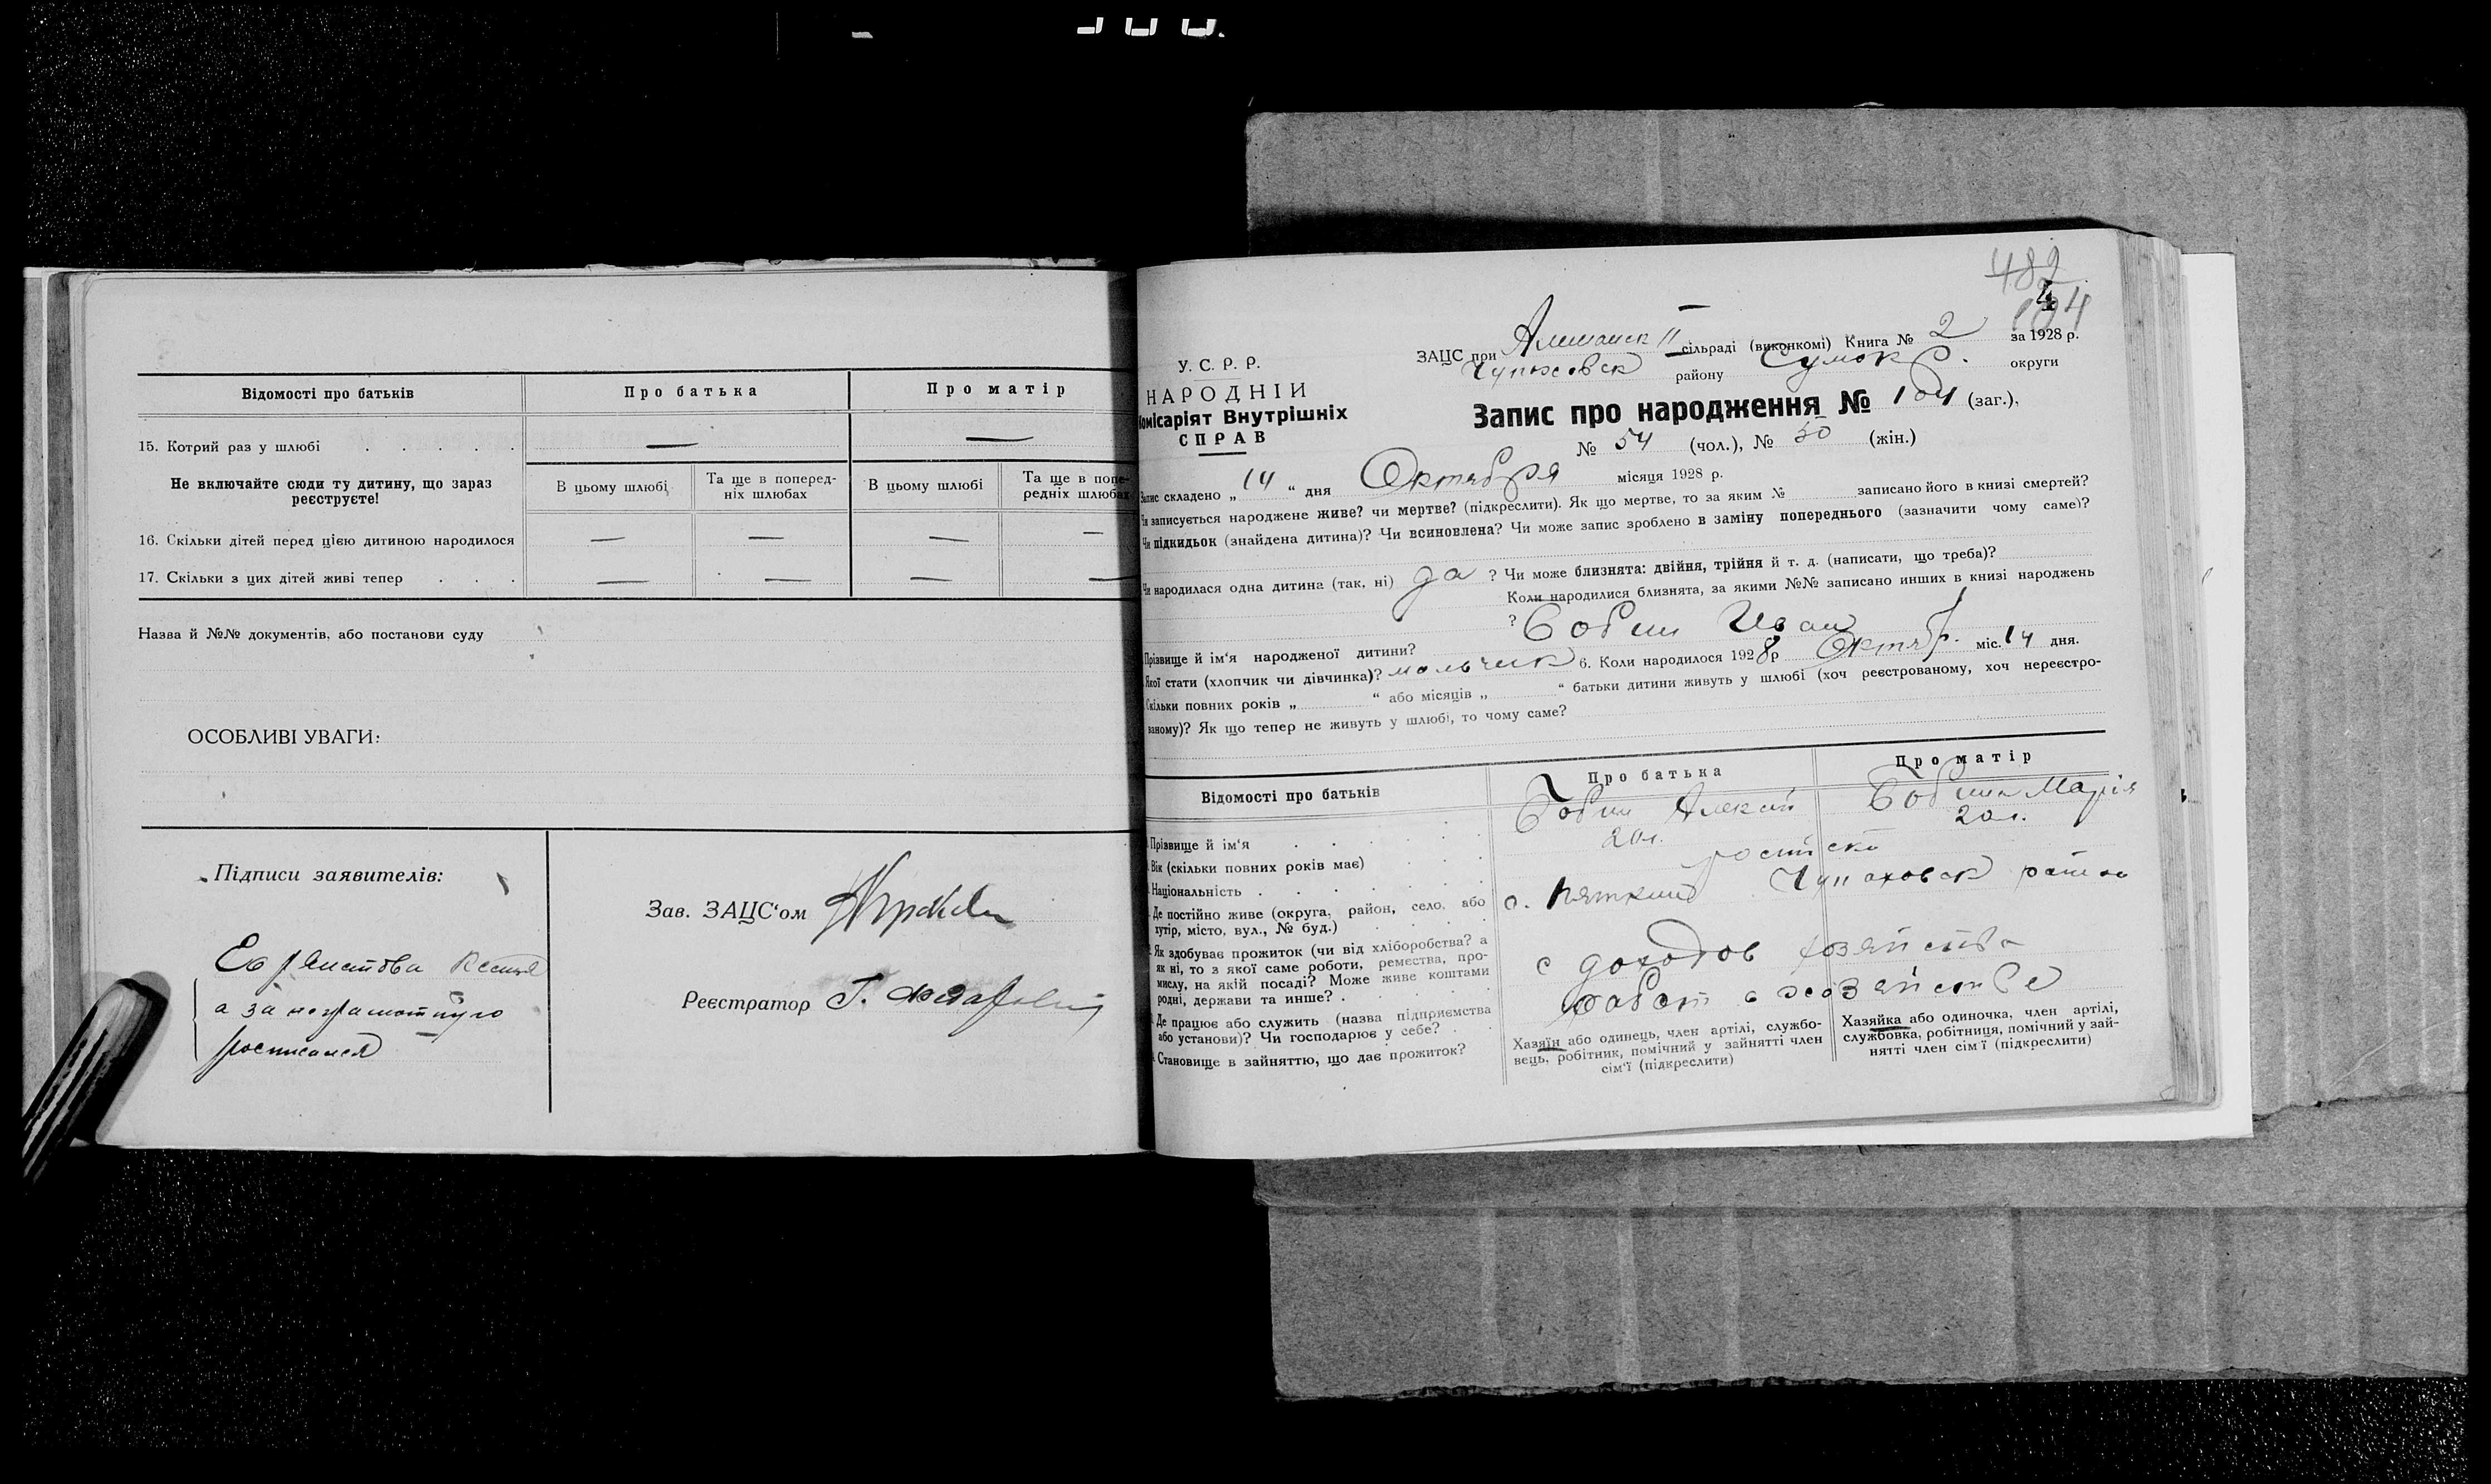 Відомості про батьків
Про батька
Про матір
15. Котрий раз у шлюбі
—
—
Не включайте сюди ту дитину, що зараз реєструєте!
В цьому шлюбі
Та ще в поперед-
ніх шлюбах
В цьому шлюбі
Та ще в попе-
редніх шлюбах
16. Скільки дітей перед цією дитиною народилося
— — — —
17. Скільки з цих дітей живі тепер
— — — —
Назва й №№ документів, або постанови суду
ОСОБЛИВІ УВАГИ:
Підписи заявителів:
а за неграмотную
росписался
Зав. ЗАЦС'ом
Реєстратор Г.
487
104
У. С. Р. Р.
НАРОДНІЙ
Комісаріят Внутрішніх
СПРАВ
ЗАЦС при сільраді (виконкомі) Книга № 2 за 1928 р.
Чупаховск району Сумск округи
Запис про народження № 104 (заг.),
№ 54 (чол.), № 50 (жін.)
Запис складено „ 14 “ дня Октября місяця 1928 р.
Чи записується народжене живе? чи мертве? (підкреслити). Як що мертве, то за яким № записано його в книзі смертей?
Чи підкидьок (знайдена дитина)? Чи всиновлена? Чи може запис зроблено в заміну попереднього (зазначити чому саме)?
Чи народилася одна дитина (так, ні) да ? Чи може близнята: двійня, трійня й т. д. (написати, що треба)?
Коли народилися близнята, за якими №№ записано инших в книзі народжень
?
Прізвище й ім'я народженої дитини? Бобин Иван
Якої стати (хлопчик чи дівчинка)? мальчик 6. Коли народилося 1928 р Октяб. міс. 14 дня.
Скільки повних років „ “ або місяців „ “ батьки дитини живуть у шлюбі (хоч реєстрованому, хоч нереєстро-
ваному)? Як що тепер не живуть у шлюбі, то чому саме?
Відомості про батьків
Про батька
Про матір
Прізвище й ім'я
Бобин Алексей
Бобина Марія
Вік (скільки повних років має)
20 л.
20 л.
Національність
Де постійно живе (округа, район, село, або
хутір, місто, вул., № буд.)
с. Чупаховск района
Як здобуває прожиток (чи від хліборобства? а
як ні, то з якої саме роботи, ремества, про-
мислу, на якій посаді? Може живе коштами
родні, держави та инше?
с доходов хозяйства
Де працює або служить (назва підприємства
або установи)? Чи господарює у себе?
работ в хозяйстве
Становище в зайняттю, що дає прожиток?
Хазяїн або одинець, член артілі, службо-
вець, робітник, помічний у зайнятті член
сім'ї (підкреслити)
Хазяйка або одиночка, член артілі,
службовка, робітниця, помічний у зай-
нятті член сім'ї (підкреслити)